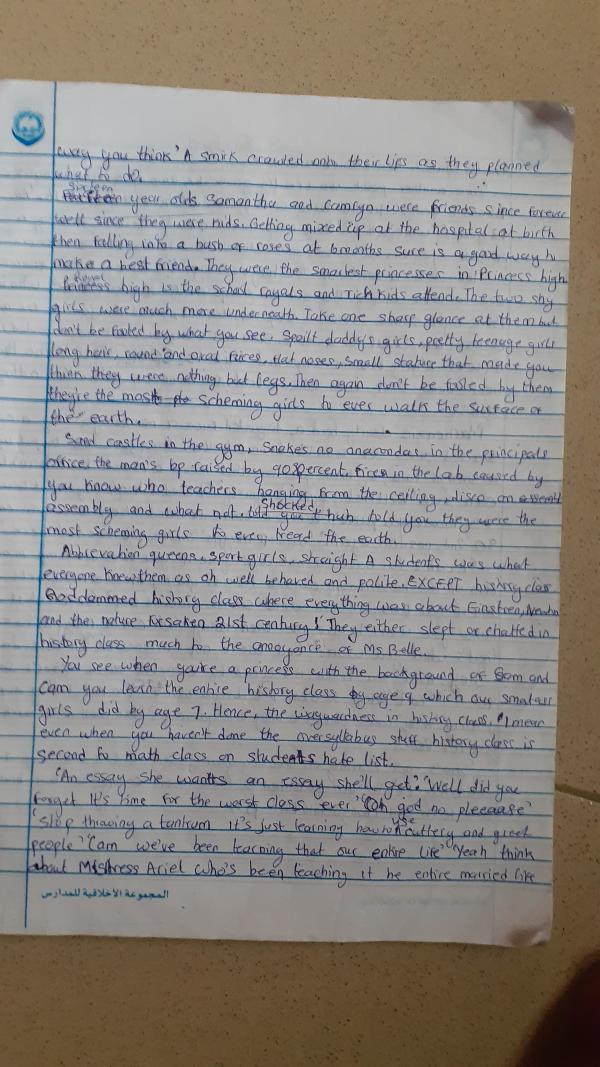 way you think' A smirk crawled onto their lips as they planned
what to do.
Sixteen
year olds Samantha and Camryn were friends since forever
well since they were kids. Getting mixed up at the hospital at birth
then falling into a bush of roses at 6months sure is a good way to
make a best friend. They were the smartest princesses in Princess high
high is the school royals and rich kids attend. The two shy
girls were much more underneath. Take one sharp glance at them but
don't be fooled by what you see. Spoilt daddy's girls, pretty teenage girls
long hair, round and oval faces, flat noses, small stature that made you
think they were nothing but legs. Then again don't be fooled by them
they're the most scheming girls to ever walk the surface of
the earth.
Sand castles in the gym, snakes no anacondas in the principals
office, the man's bp raised by 90percent, fires in the lab caused by
you know who teachers hanging from the ceiling, disco on
shocked,
assembly and what not, huh told you they were the
most scheming girls to ever tread the earth.
Abbrevation queens, sport girls, straight A students was what
everyone knew them as oh well behaved and polite. EXCEPT history class
Goddammed history class where everything was about Einstren, Newton
and the nature forsaken 21st century! They either slept or chatted in
history class much to the annoyance of Ms Belle.
You see when you're a princess with the background of Sam and
Cam you learn the entire history class by age 9 which our smartass
girls did by age 7. Hence, the waywardness in history class. I mean
even when you haven't done the oversyllabus stuff history class is
second to math class on students hate list.
'An essay she wants an essay she'll get' 'Well did you
forget It's time for the worst class ever' 'Oh god no pleeaase'
use
'Stop throwing a tantrum it's just learning how to cuttery and greet
people' 'Cam we've been learning that our entire life' 'Yeah think
about Mistress Ariel who's been teaching it he entire married life
المجموعة الأخلاقية للمدارس